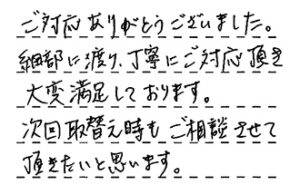 ご対応ありがとうございました。
細部に渡り、丁寧にご対応頂き
大変満足しております。
次回取替え時もご相談させて
頂きたいと思います。